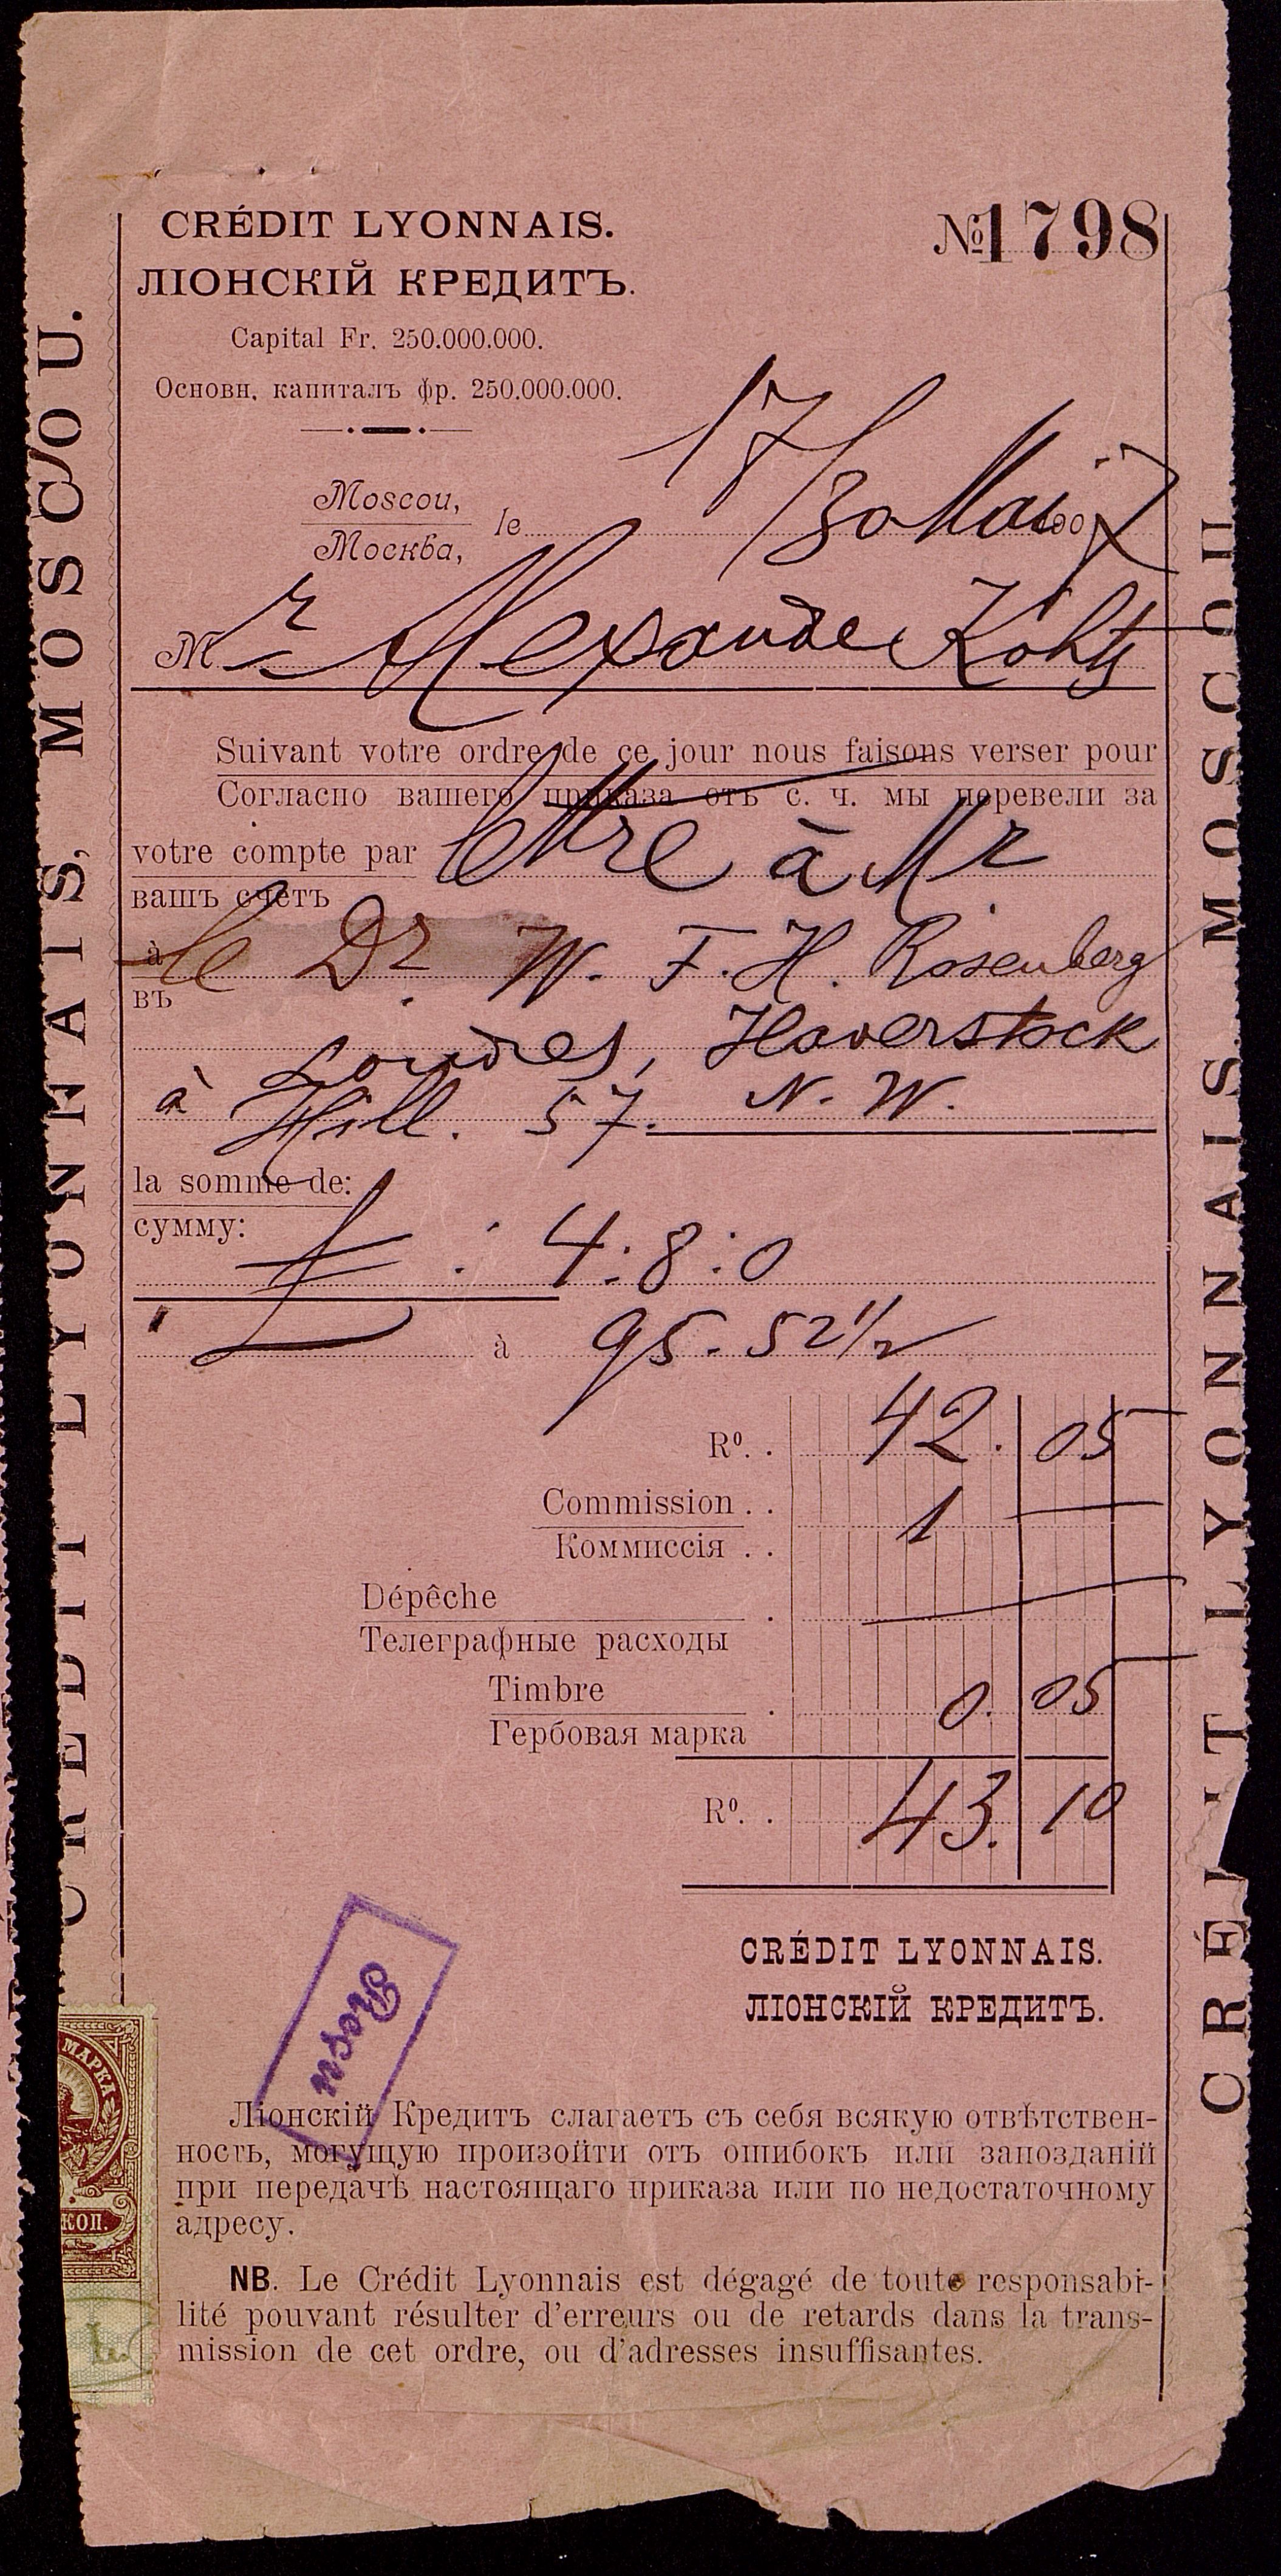 CRÉDIT LYONNAIS.
№ 1798
ЛІОНСКІЙ КРЕДИТЪ.
Capital Fr. 250.000.000.
Основн. капиталъ фр. 250.000.000.
Moscou,
Москва,
le 17/30 Mai 1907
Mr Alexandre Kohts
Suivant votre ordre de ce jour nous faisons verser pour
Согласно вашего приказа отъ с. ч. мы перевели за
votre compte par lettre à Mr
вашъ счетъ
à le Dr W. F. H. Rosenberg
въ
Londres, Haverstock
à Hill. 57. N. W.
la somme de:
сумму:
£ : 4:8:0
à 95.52 1/2
Rº. . 42. 05
Commission . . 1 —
Коммиссія . .
Dépêche . —
Телеграфные расходы
Timbre . 0. 05
Гербовая марка
Rº. . 43. 10
CRÉDIT LYONNAIS.
ЛІОНСКІЙ КРЕДИТЪ.
Reçu
МАРКА
КОП.
Ліонскій Кредитъ слагаетъ съ себя всякую отвѣтствен-
ность, могущую произойти отъ ошибокъ или запозданій
при передачѣ настоящаго приказа или по недостаточному
адресу.
NB. Le Crédit Lyonnais est dégagé de toute responsabi-
lité pouvant résulter d'erreurs ou de retards dans la trans-
mission de cet ordre, ou d'adresses insuffisantes.
CRÉDIT LYONNAIS, MOSCOU.
CRÉDIT LYONNAIS MOSCOU